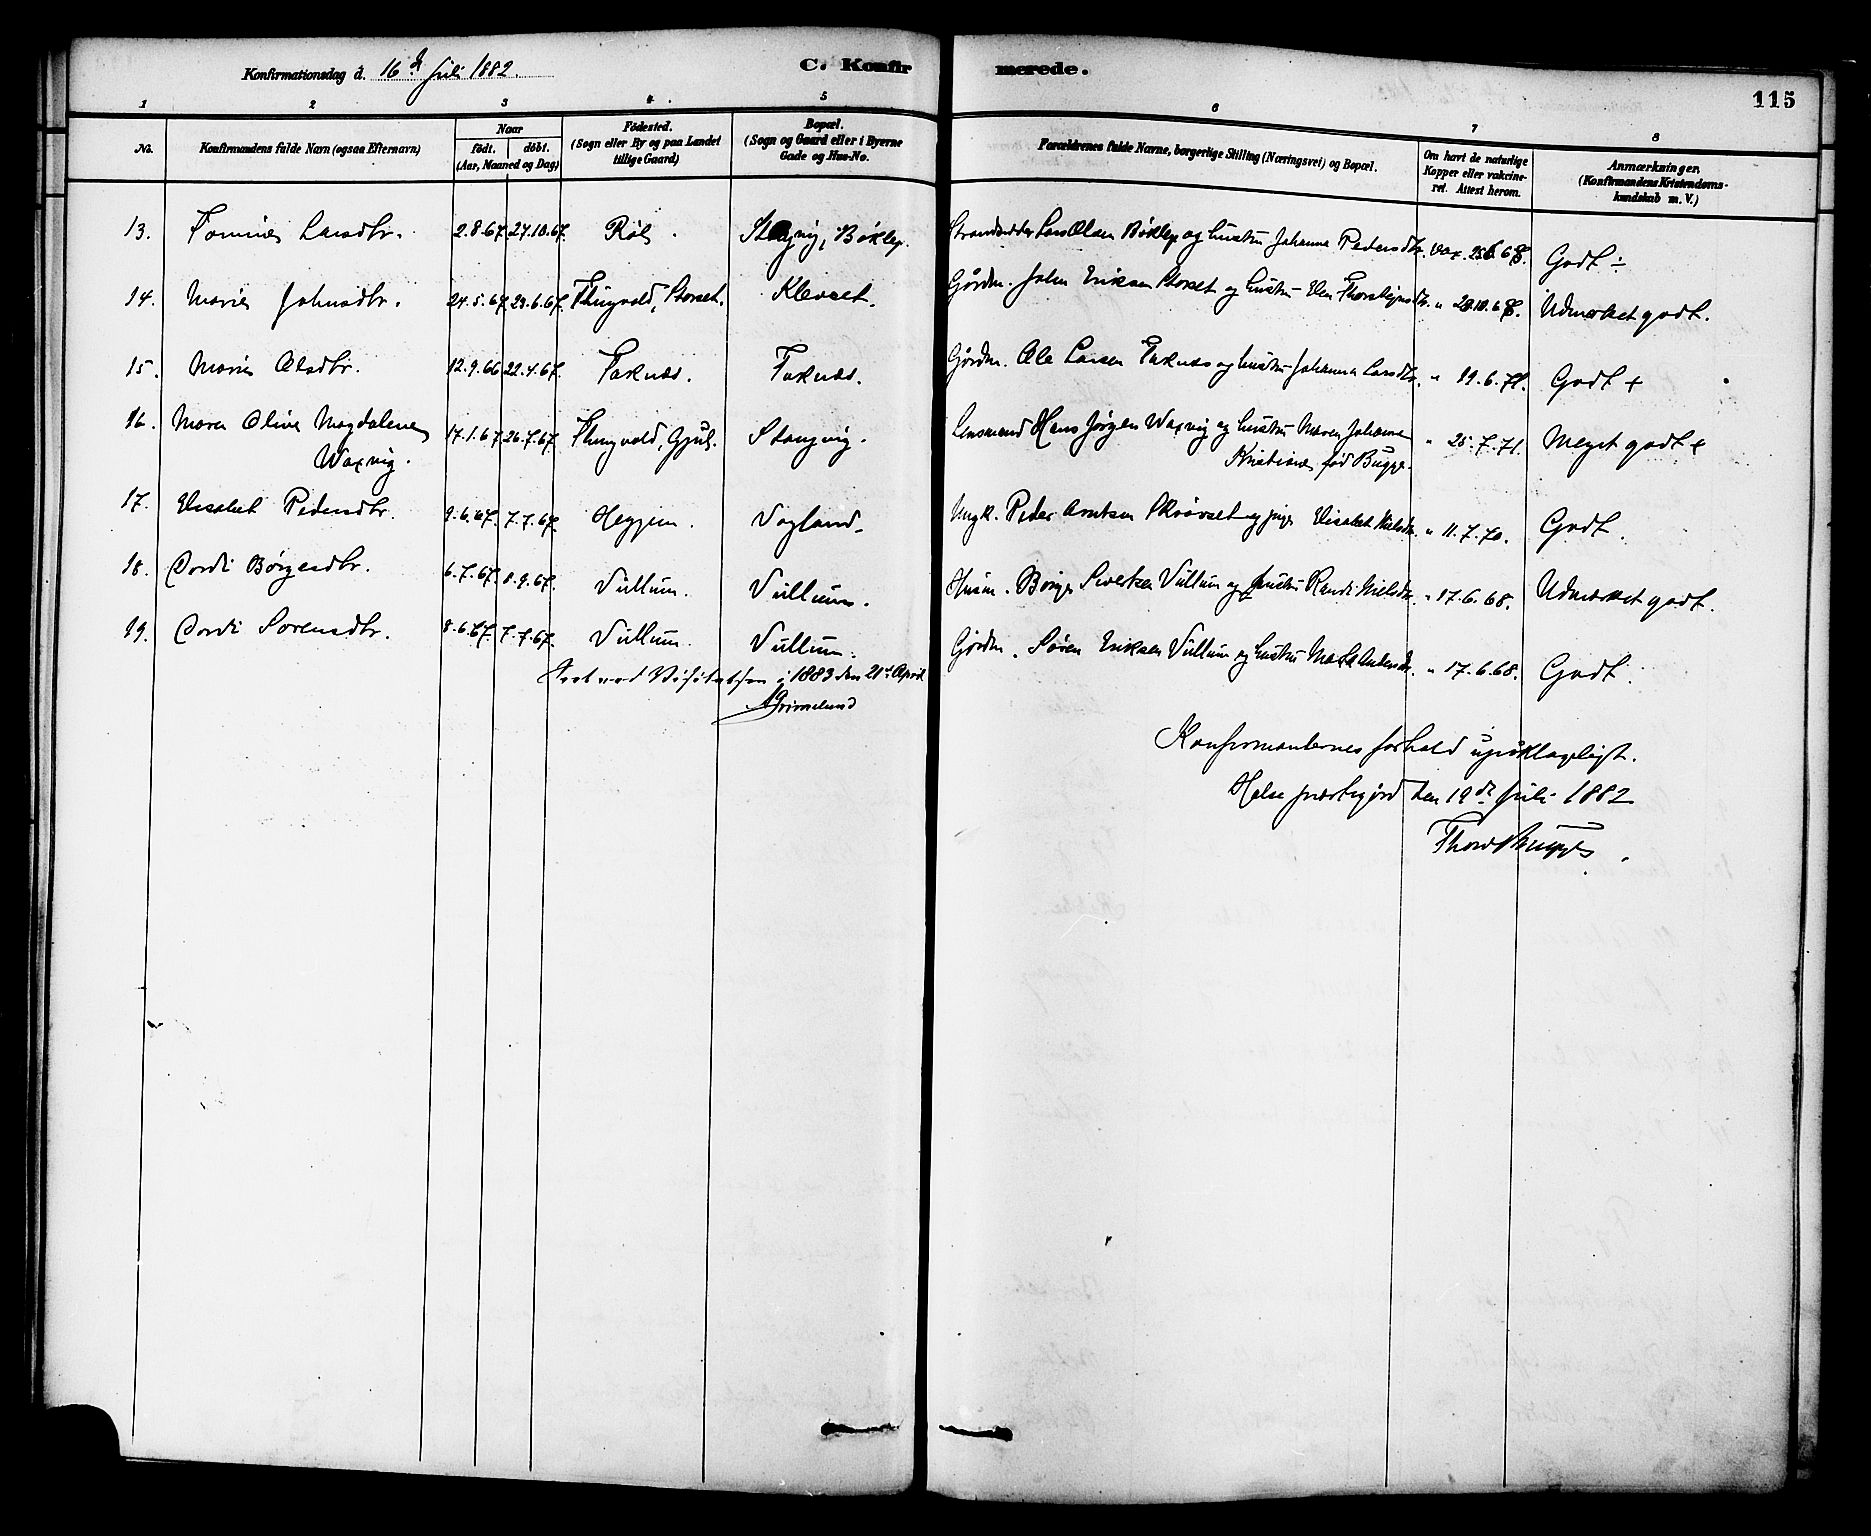 Konfirmationsdag d. 16d Juli 1882.
C. Konfirmerede.
115
1 2 3 4 5 6 7 8
No.
Konfirmandens fulde Navn (ogsaa Efternavn)
Naar
født. døbt.
(Aar, Maaned og Dag)
Fødested.
(Sogn eller By og paa Landet
tillige Gaard)
Bopæl.
(Sogn og Gaard eller i Byerne
Gade og Hus-No.
Forældrenes fulde Navne, borgerlige Stilling (Næringsvei) og Bopæl.
Om havt de naturlige
Kopper eller vakcine-
ret. Attest herom.
Anmærkninger.
(Konfirmandens Kristendoms-
kundskab m. V.)
13. Larsdtr. 2.8.67. 27.10.67. Røl. Stangvig, Bøklep. Lars Olsen Bøklep og hustru Johanna Pedersdtr. Vax. Godt ÷
14. Marie Johnsdtr. 24.5.67. 23.6.67. Thingvold, Storset. Klevset. Gårdm. John Eriksen Storset og hustru " Udmærket godt.
15. Marie Olsdtr. 12.9.66 22.4.67. Taknes. Taknes. Gårdm. Ole Larsen Taknes og hustru Johanna Larsdtr. " 19.6.71. Godt +
16. Maren Oline Magdalene 17.1.67 26.7.67. Thingvold, Gjul. Stangvig. Lensmand Hans Jørgen Waxvig og hustru Maren Johanne " 25.7.71. Meget godt +
Waxvig. Kristiane fød Bugge.
17. Elisabet Pedersdtr. 9.6.67. 7.7.67. Heggem. Vagland. Ungk. Peder Arntsen og pige Elisabet Nielsdtr. " 11.7.70. Godt.
18. Cordi Børgesdtr. 6.7.67. 8.9.67. Vullum. Vullum. Husm. Børge Sivertsen Vullum og hustru Randi Nielsdtr. " 17.6.68. Udmærket godt.
19. Cordi Sørensdtr. 8.6.67. 7.7.67. Vullum. Vullum. Gårdm. Søren Eriksen Vullum og hustru " 17.6.68. Godt.
ved Visitatsen i 1883 den 21de April
Grimelund
Konfirmanternes forhold upåklageligt.
Halse præstegård den 19de Juli 1882